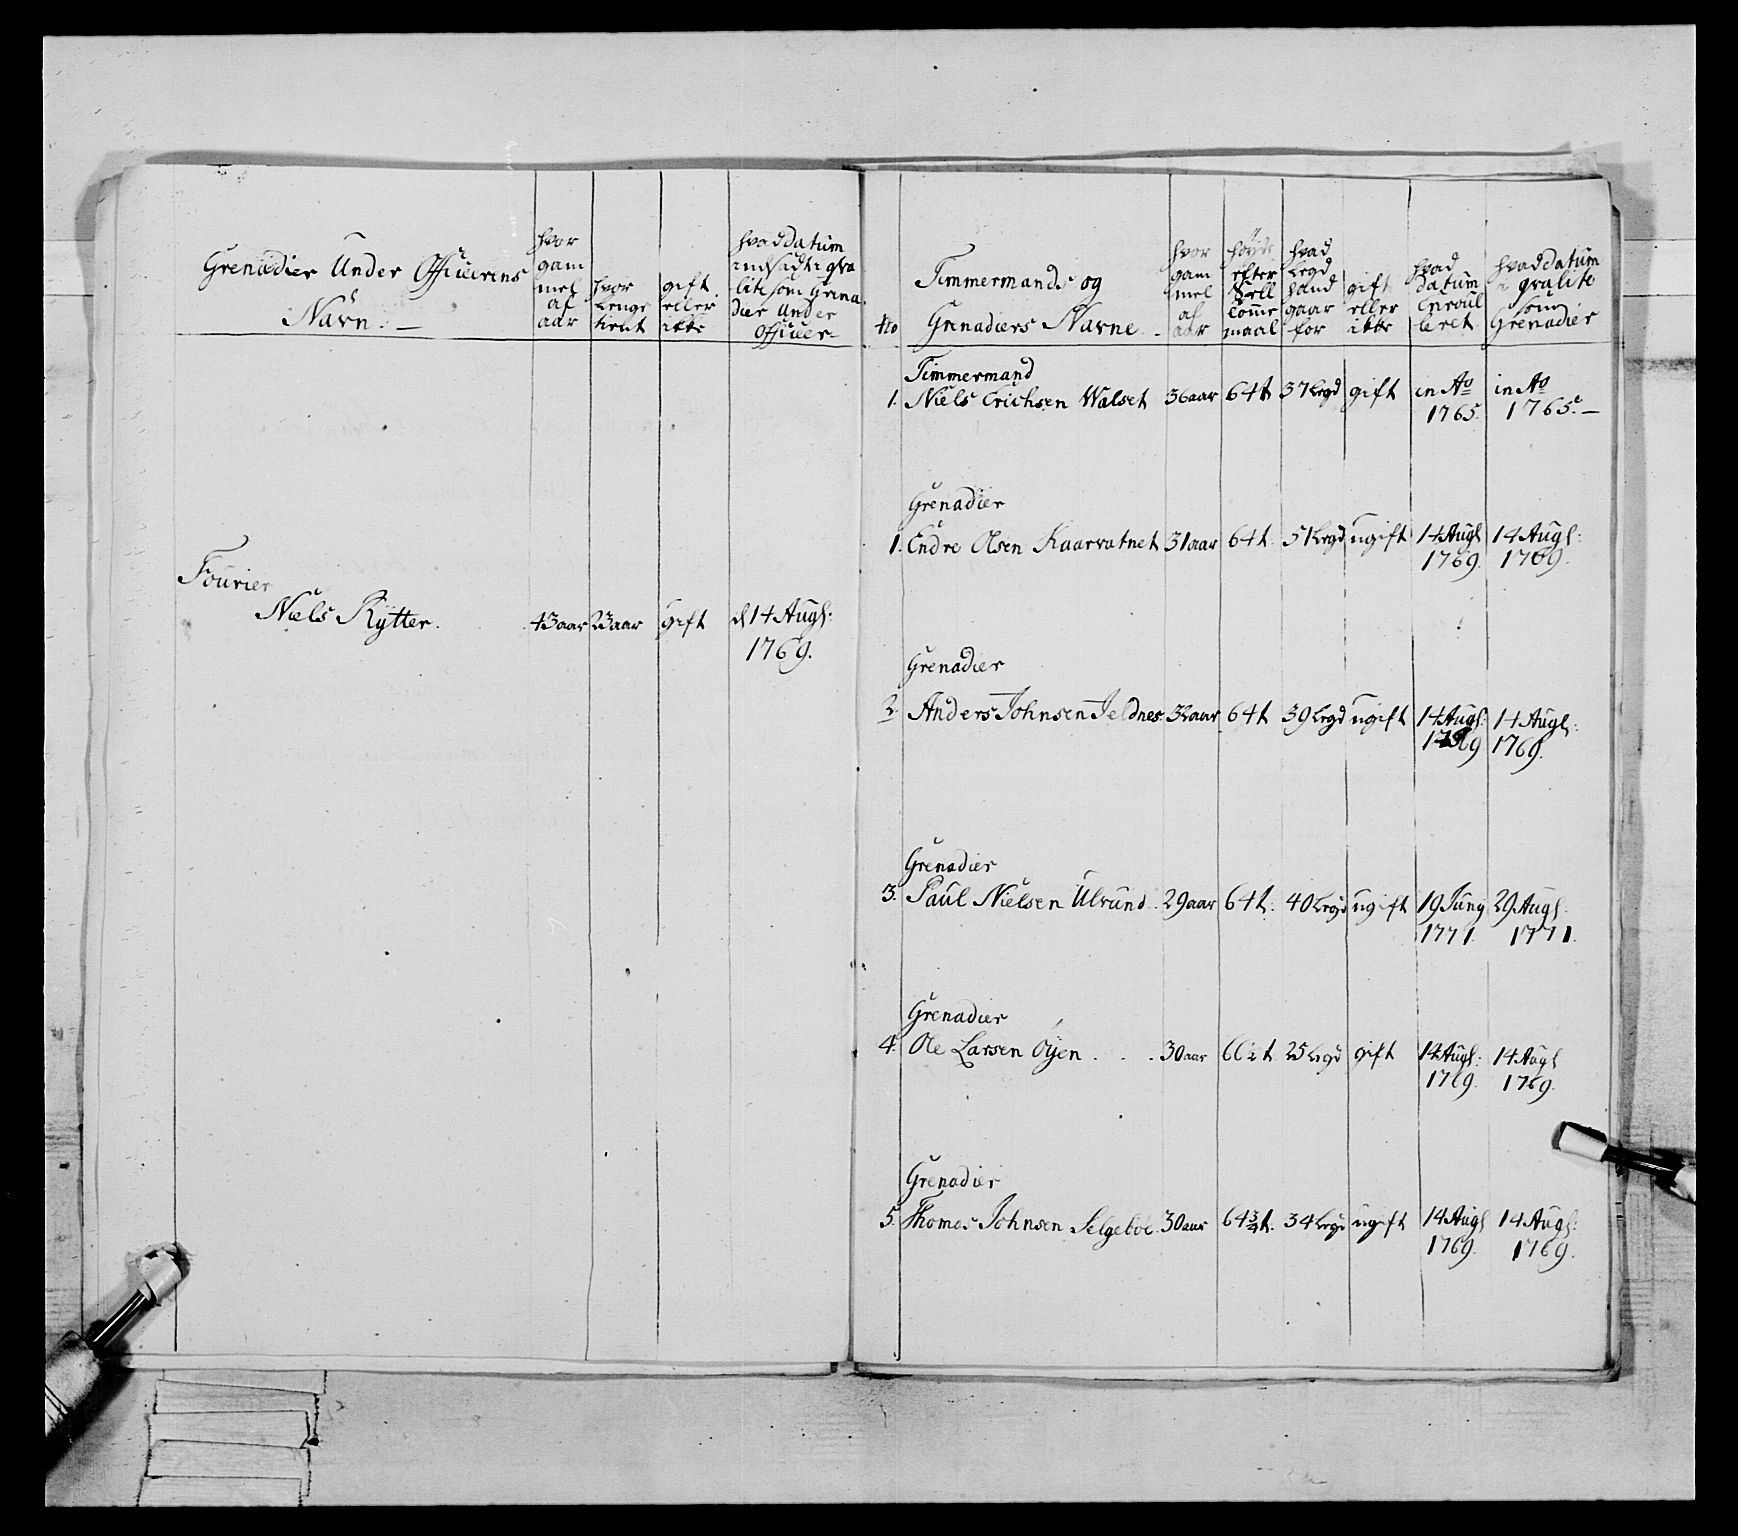 Grenadier Under Officerens
Navn. —
hvor
gam
mel
af
aar
hvor
lenge
tient
gift
eller
ikke
hvad datum
indsadt i qva
lite som Grena
dier Under
Officer
Fourier
Niels Rytter. 43 aar 23 aar gift d 14 Augs:
1769.
No
Timmermands og
Grenadiers Navne
hvor
gam
mel
af
aar
høyde
efter
Sell
Comme
maal
hvad
Legd
hand
gaar
for
gift
eller
ikke
hvad
datum
Enroul
leret
hvad datum
i qvalite
som
Grenadier
Timmermand
1. Niels Erichsen Walset 36 aar 64 t 37 Legd gift in Ao in Ao
1765. 1765. —
Grenadier
1. Endre Olsen Kaarvatnet 31 aar 64 t. 51 Legd ugift 14 Augs 14 Augs:
1769. 1769.
Grenadier
2. Anders Johnsen Jeldnes 32 aar 64 t 39 Legd ugift 14 Augs: 14 Augs:
1769 1769.
Grenadier
3. Paul Nielsen Ulvund 29 aar 64 t. 40 Legd ugift 19 Juny 29 Augs.
1771. 1771.
Grenadier
4. Ole Larsen Øyen . . . 30 aar 66½ t. 25 Legd gift 14 Augs: 14 Augs
1769. 1769.
Grenadier
5. Thomas Johnsen Selgeboe 30 aar 64¾ t. 34 Legd ugift 14 Augs 14 Augs:
1769. 1769.